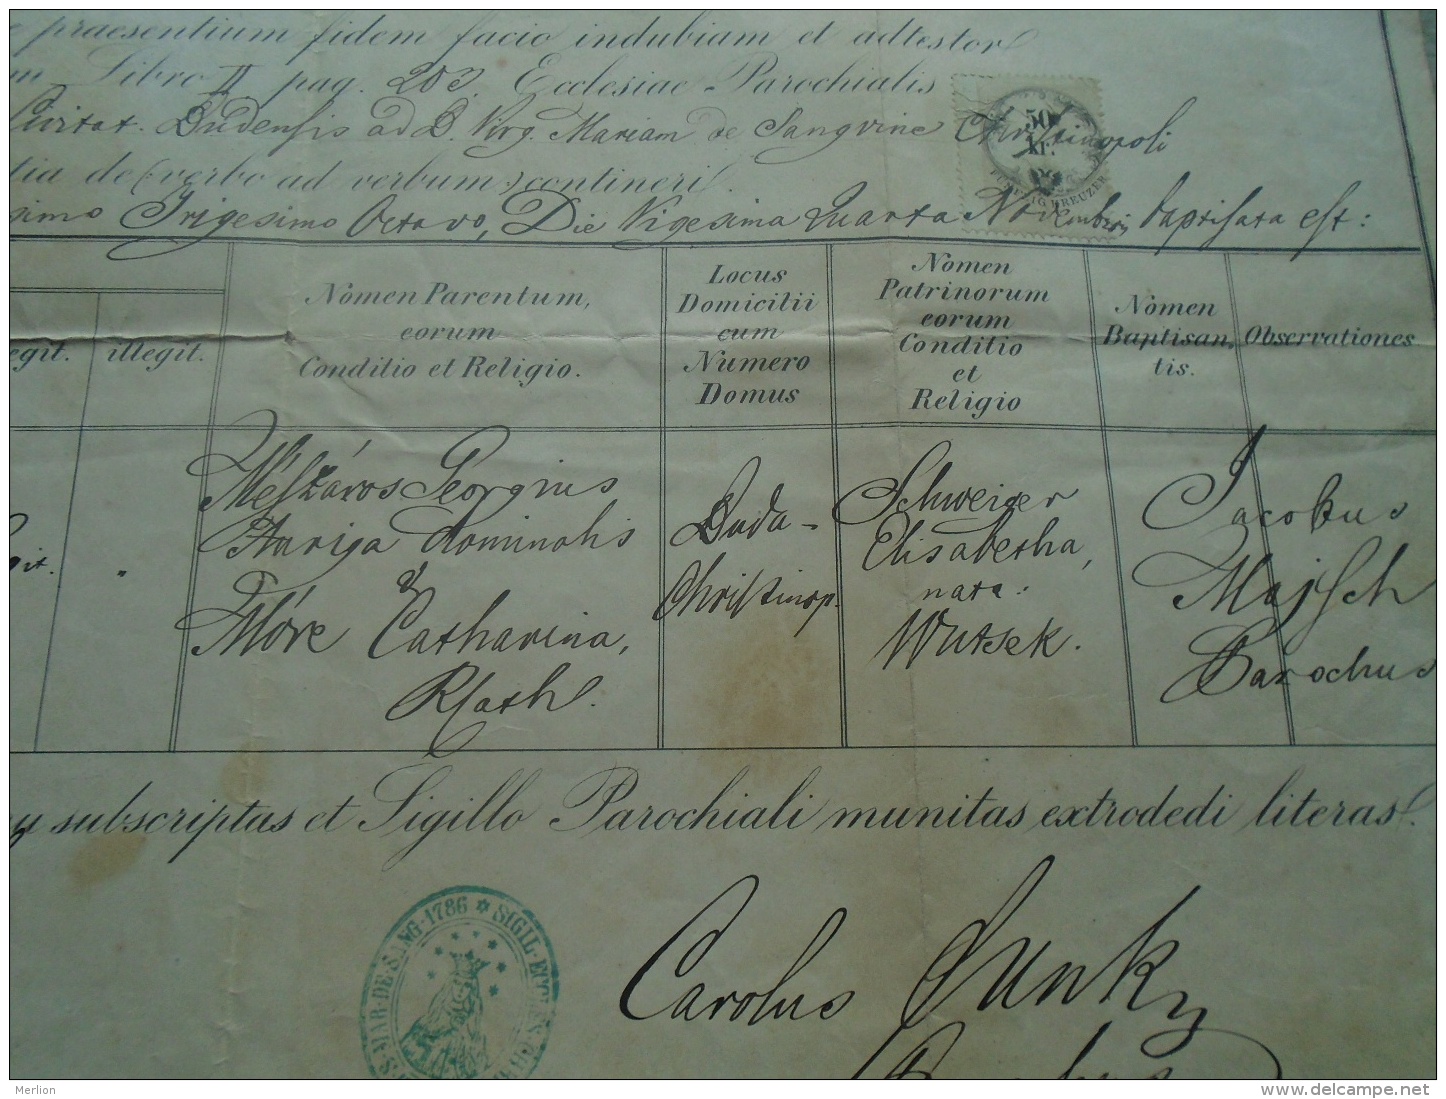 praesentium fidem facio indubiam et adtestor
Libro II. pag. 203. Ecclesiae Parochialis
Civitat. Budensis ad B. Virg. Mariam de Sangvine Christinopoli
tia de (verbo ad verbum) contineri.
simo Trigesimo Octavo, Die Vigesima Quarta Novembris baptisata est:
50
kr.
egit.
illegit.
Nomen Parentum,
eorum
Conditio et Religio.
Locus
Domicilii
cum
Numero
Domus
Nomen
Patrinorum
eorum
Conditio
et
Religio
Nomen
Baptisan
tis.
Observationes
Mészáros Georgius
Auriga dominalis
&
Móre Catharina,
Rlath.
Buda-
Christinop.
Schweiger
Elisabetha,
nata:
Wutsek.
Jacobus
Majsch
Parochus
subscriptas et Sigillo Parochiali munitas extrodedi literas.
SIGIL. ECCLES. MAR. DE. SANG. 1786
Carolus Sunky
Merlion
www.delcampe.net